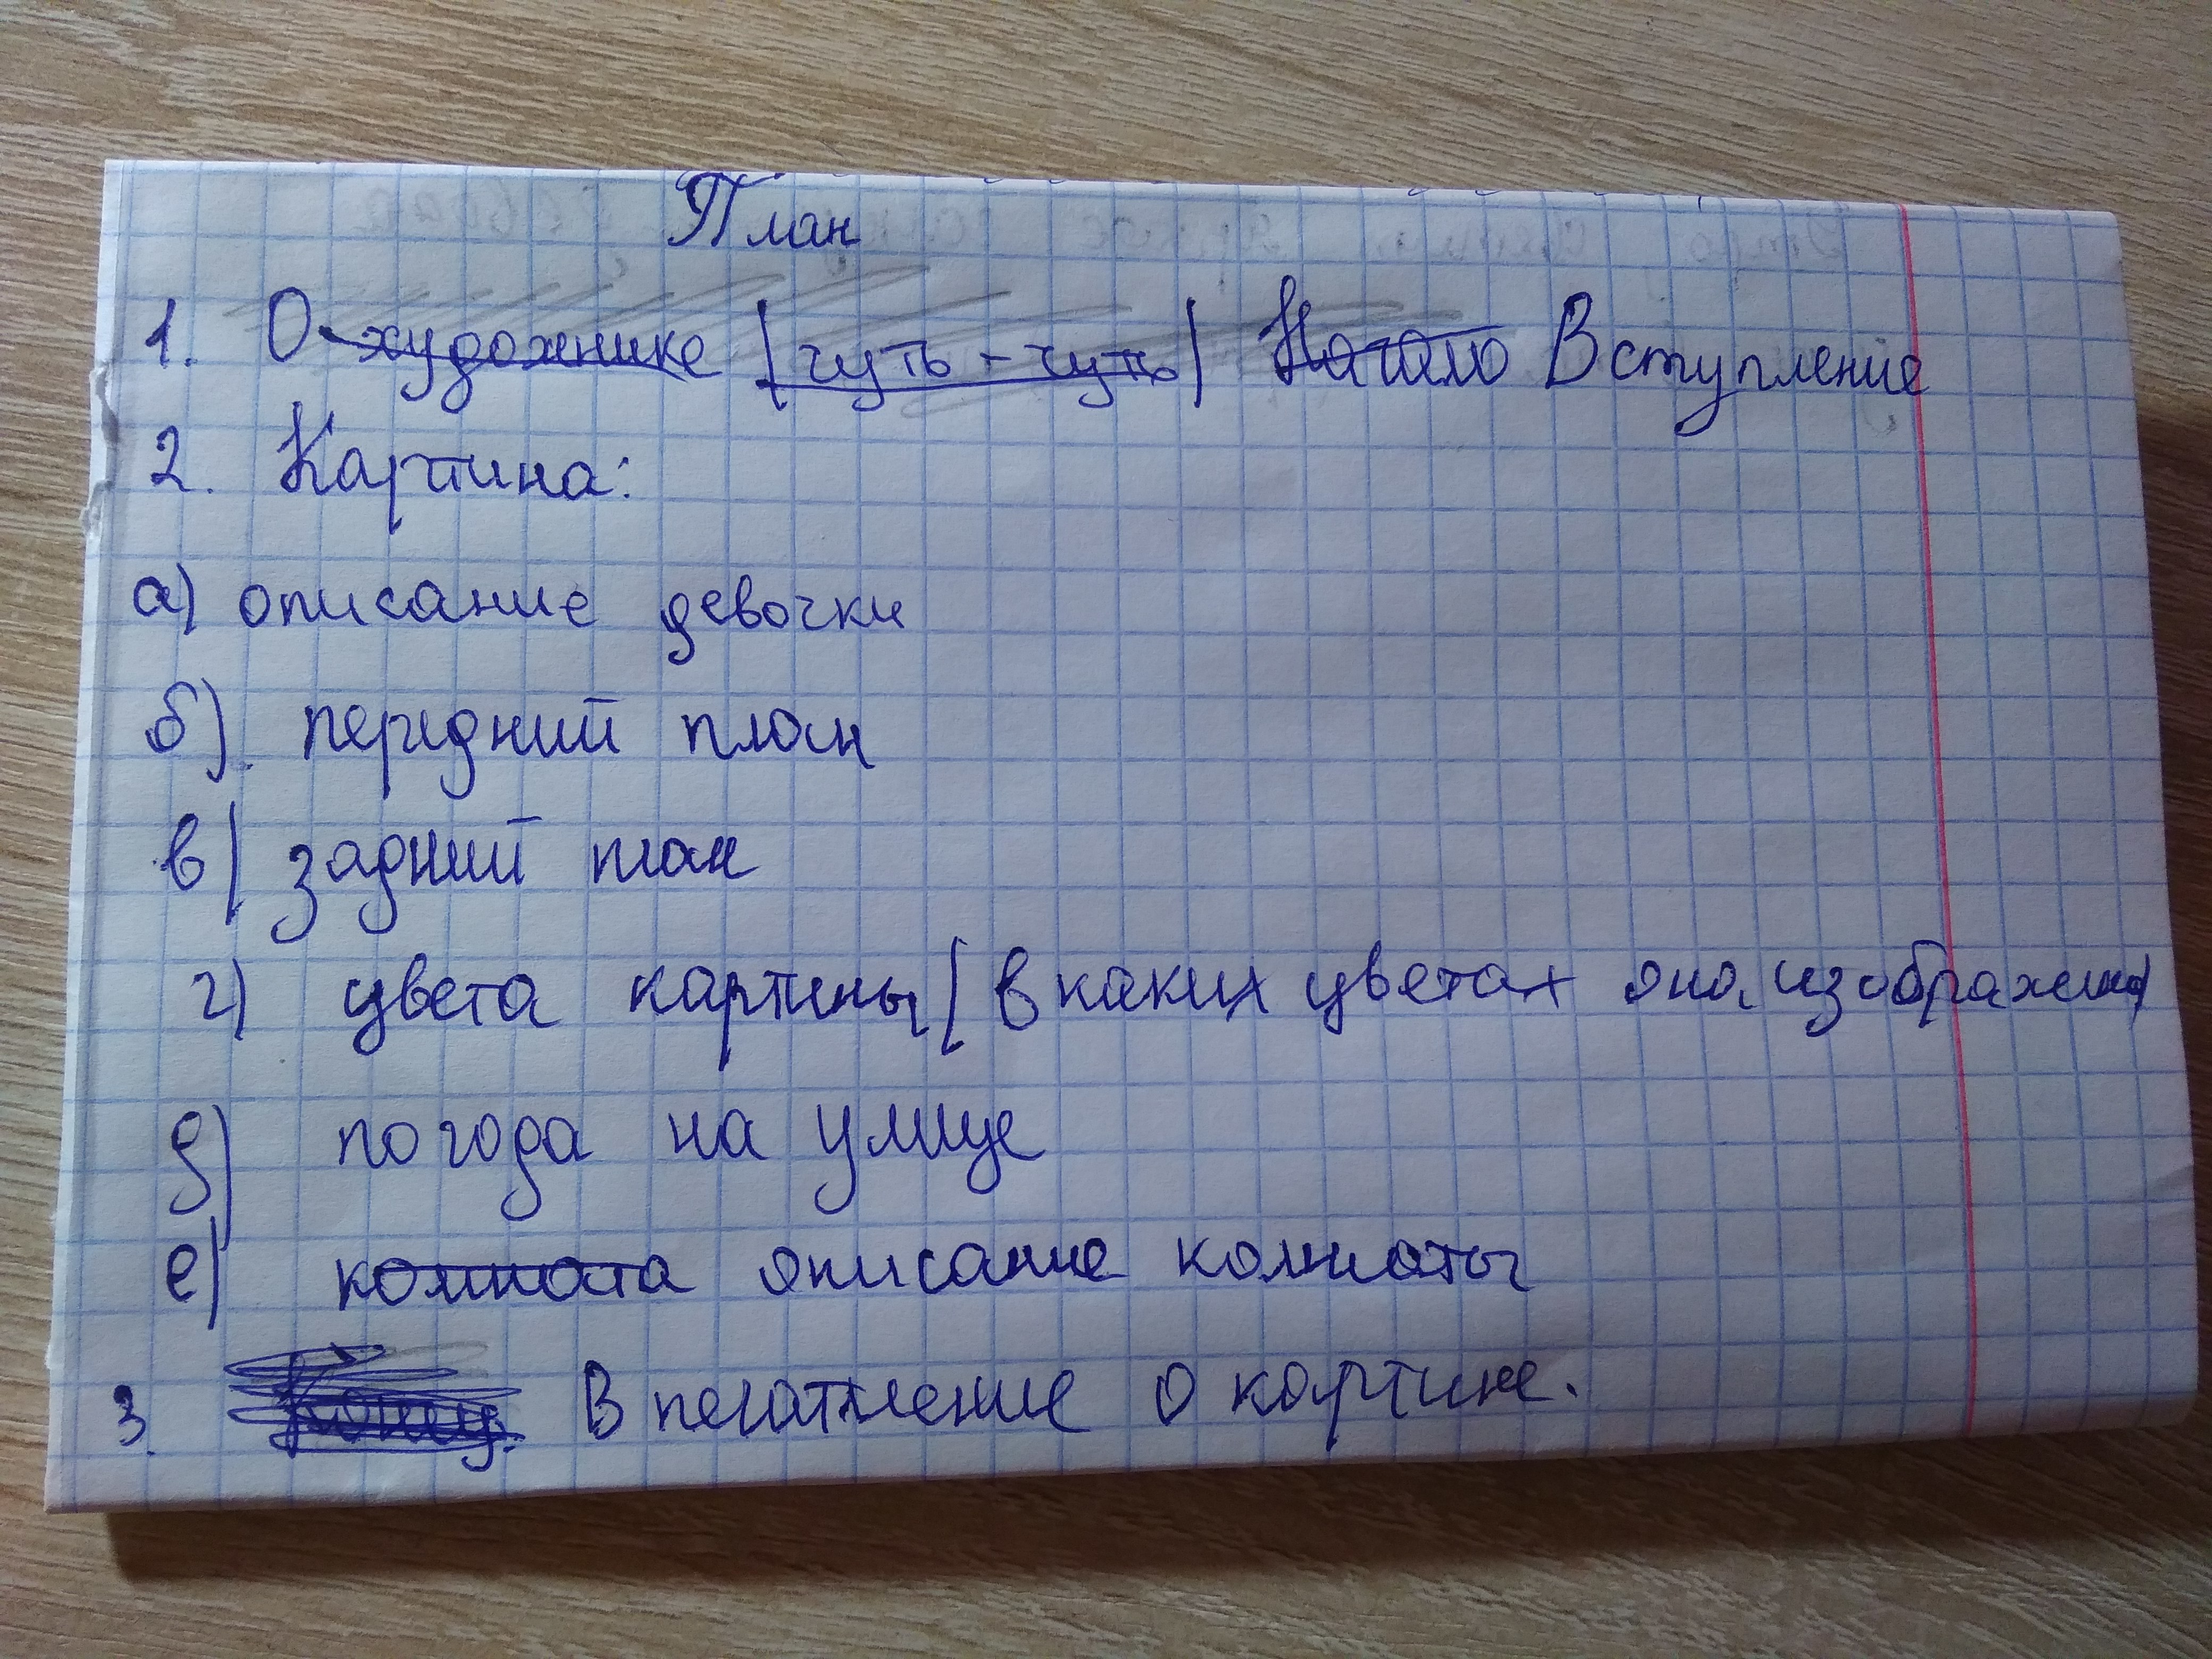 План
1. О художнике (чуть-чуть) Начало Вступление
2. Картина:
а) описание девочки
б) передний план
в) задний план
г) цвета картины (в каких цветах она изображена)
д) погода на улице
е) комната описание комнаты
3. Впечатление о картине.